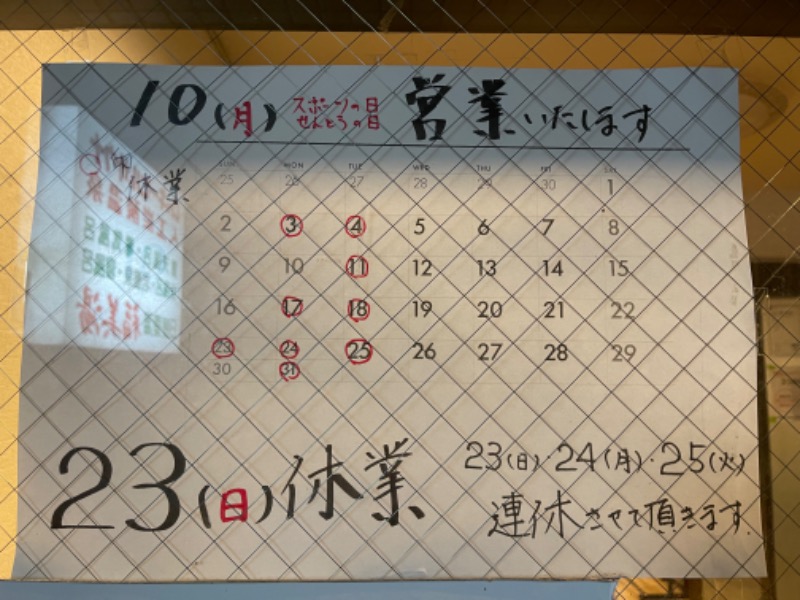 10(月) スポーツの日 営業いたします
せんとうの日
○印休業
SUN MON TUE WED THU FRI SAT
25 26 27 28 29 30 1
2 3 4 5 6 7 8
9 10 11 12 13 14 15
16 17 18 19 20 21 22
23 24 25 26 27 28 29
30 31
23(日)休業
23(日)・24(月)・25(火)
連休させて頂きます